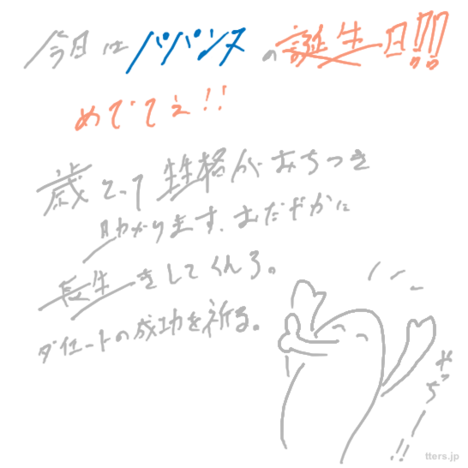 今日はパパンヌの誕生日!!
めでてぇ!!
歳とって性格がおちつき
助かります、おだやかに
長生きをしてくんろ。
ダイエートの成功を祈る。
やっぢ!!
tters.jp